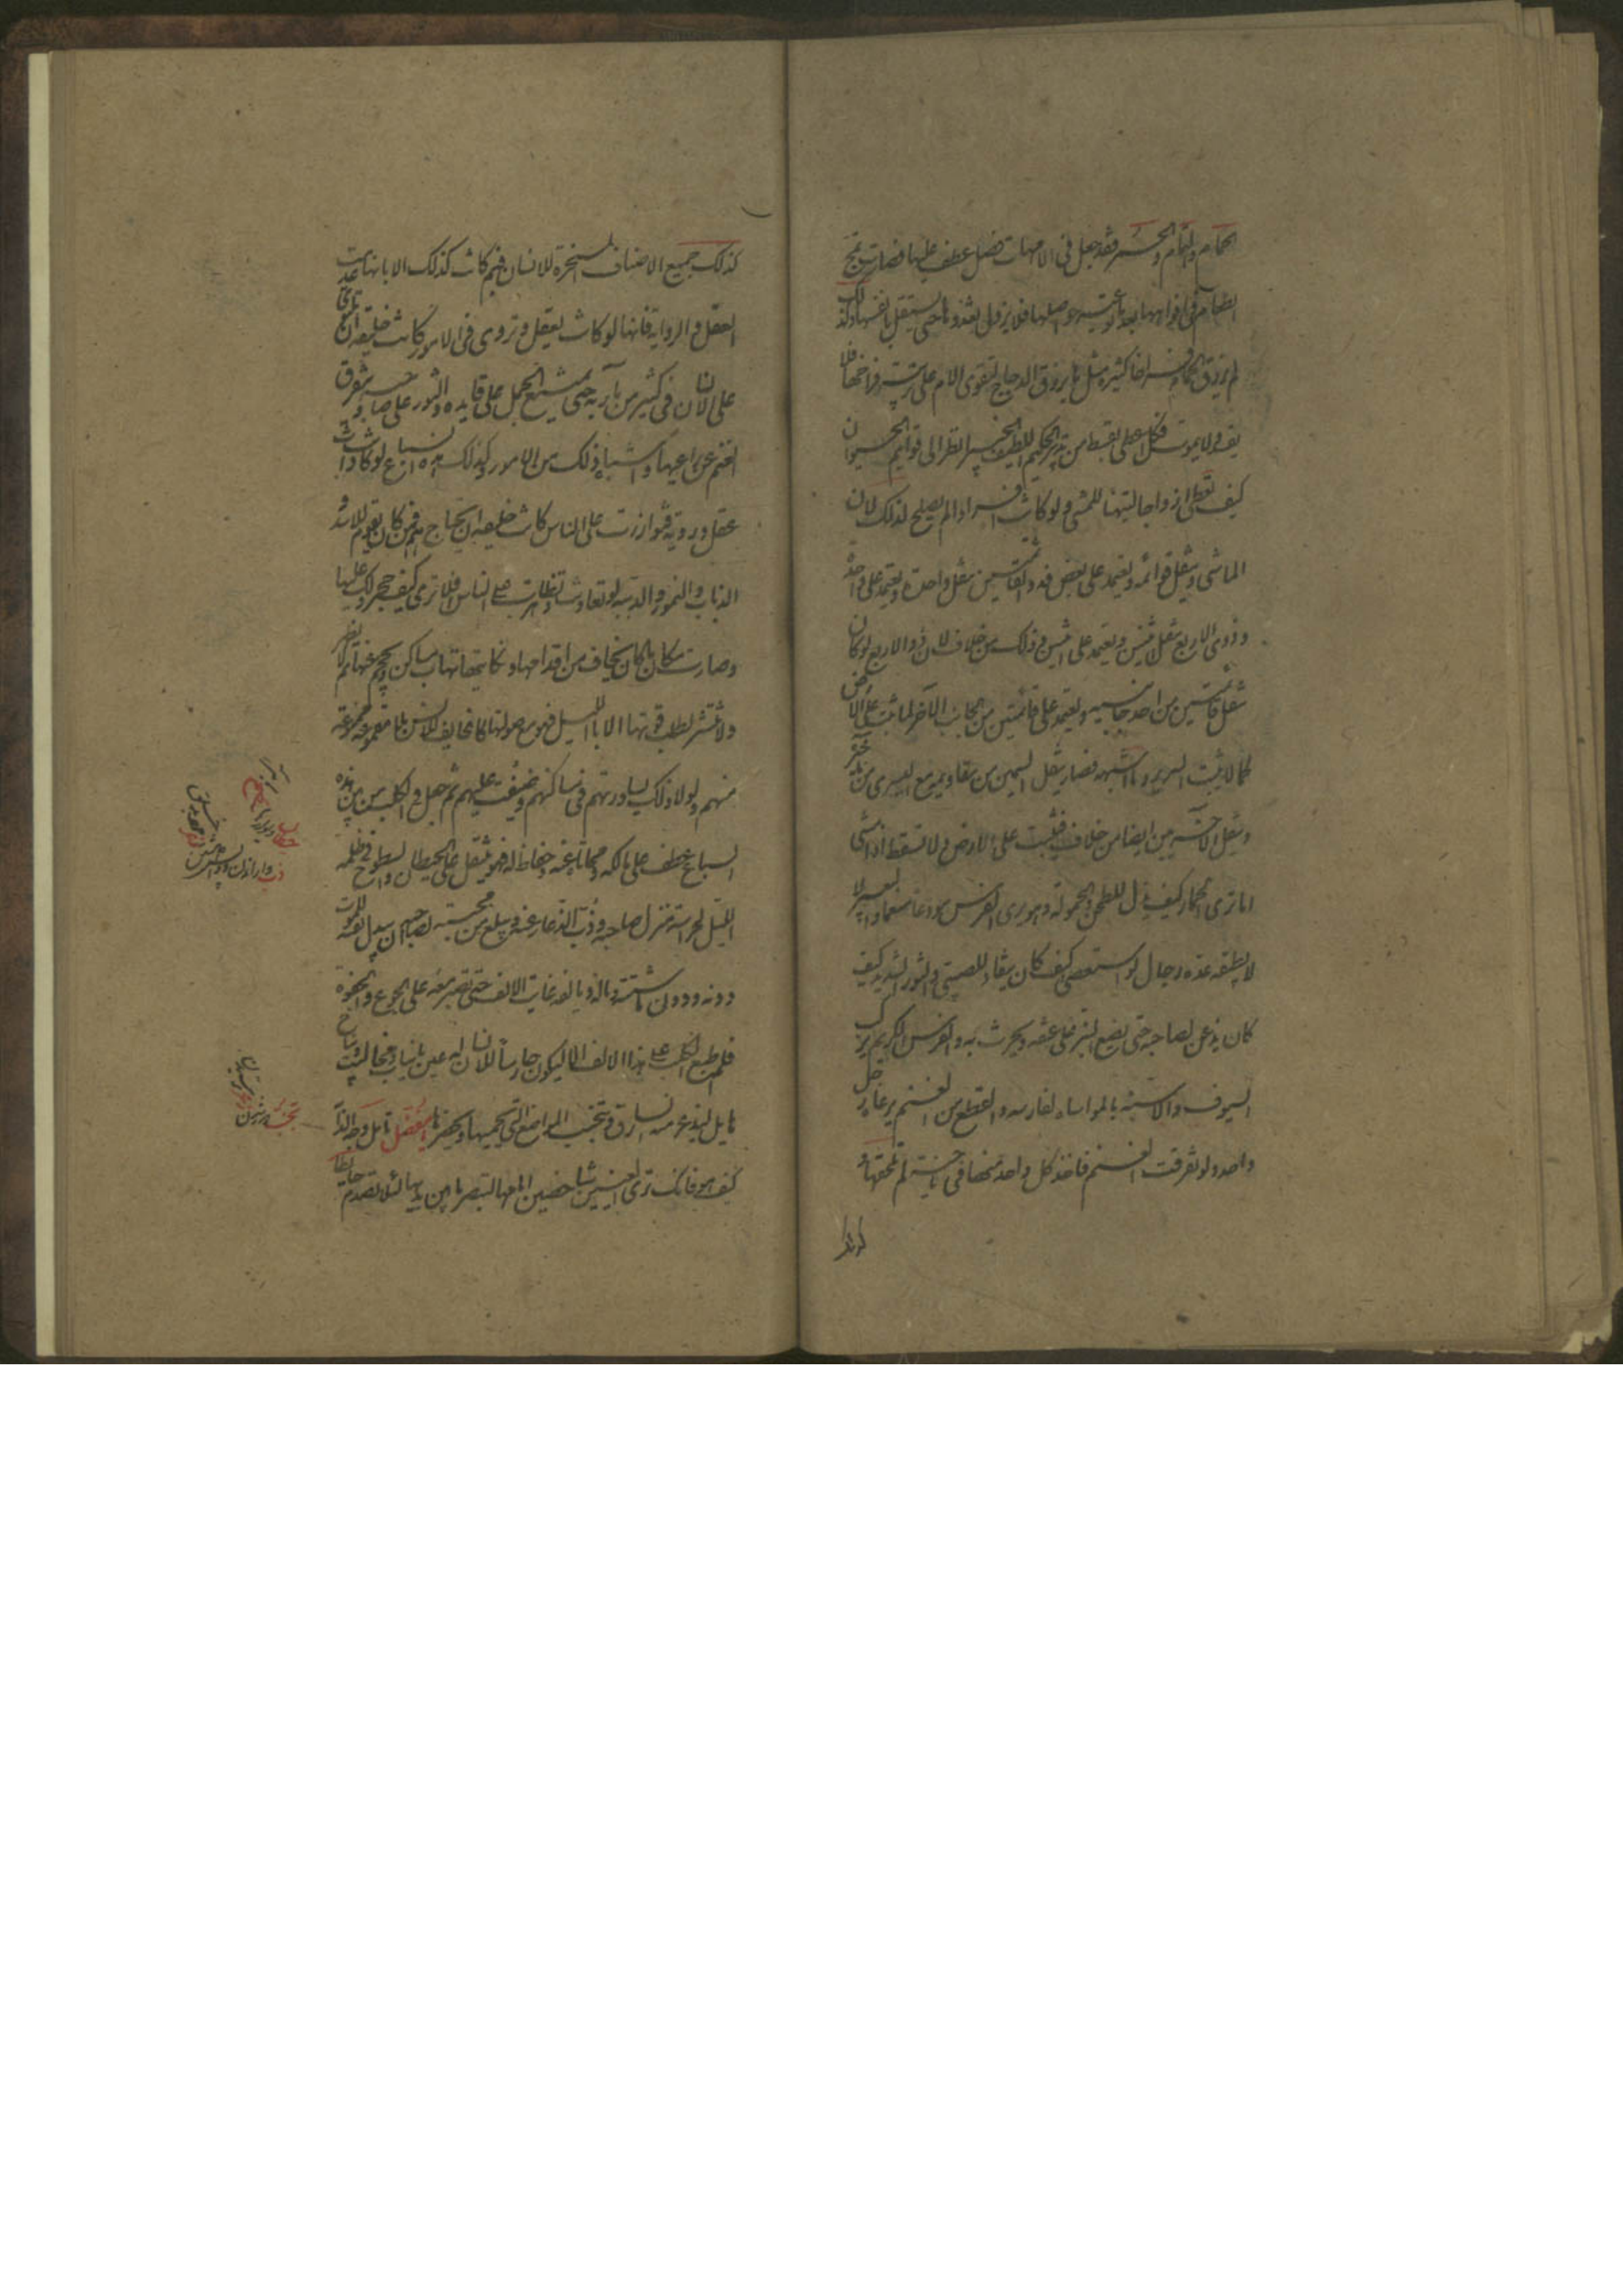 الحمام واليمام والحمر فقد جعل فى الامهات فضل عطف عليها فصارت تمج
الطعام فى افواهها بعد ما توعيه حواصلها فلا يزال يغذوها حتى يستقل بانفسها ولذلك
لم يرزق الحمام فراخا كثيرة مثل ما يرزق الدجاج لتقوى الام على تربية فراخها فلا
يفسد ولا يموت فكل اعطى بقسط من تدبير الحكيم اللطيف الخبير انظر الى قوايم الحيوان
كيف تعطى ازواجا لتهيا للمشى ولو كانت افرادا لم يصلح لذلك لان
الماشى ينقل قوائمه ويعتمد على بعض فذو القائمتين ينقل واحدة ويعتمد على واحدة
وذوى الاربع ينقل اثنين ويعتمد على اثنين وذلك من خلاف لان ذو الاربع لو كان
ينقل قائمتين من احد جانبيه ويعتمد على قائمتين من الجانب الآخر لما ثبت على الارض
كما لا يثبت السرير وما اشبهه فصار ينقل اليمين من مقاديمه مع اليسرى من مآخيره
وينقل الاخريين ايضا من خلاف فيثبت على الارض ولا تسقط اذا مشى
اما ترى الحمار كيف يذل للطحن والحمولة وهو يرى الفرس مودعا منعما والبعير لا
لا يطيقه عدة رجال لو استعصى كيف كان ينقاد للصبى والثور الشديد كيف
كان يذعن لصاحبه حتى يضع النير على عنقه ويحرث به والفرس الكريم يركب
السيوف والاسنة بالمواساة لفارسه والقطيع من الغنم يرعاه رجل
واحد ولو تفرقت الغنم فاخذ كل واحد منها فى ناحية لم يلحقها و
كذلك جميع الاصناف المسخرة للانسان فبم كانت كذلك الا بانها عدمت
العقل والروية فانها لو كانت تعقل وتروى فى الامور كانت خليقة ان تلتوى
على الانسان فى كثير من مآربه حتى يمتنع الجمل على قايده والثور على صاحبه وتتفرق
الغنم عن راعيها واشباه ذلك من الامور وكذلك هذه السباع لو كانت ذوات
عقل وروية فتوازرت على الناس كانت خليقة ان تجتاحهم فمن كان يقوم للاسد و
الذياب والنمور والدببة لو تعاونت وتظاهرت على الناس افلا ترى كيف حجر ذلك عليها
وصارت مكان ما كان يخاف من اقدامها ونكايتها تهاب مساكن وتحجم عنها ثم لا تظهر
ولا تنتشر لطلب قوتها الا بالليل فهى مع صولتها كالخايف للانس بل مقموعة ممنوعة
منهم ولولا ذلك لساورتهم فى مساكنهم وضيقت عليهم ثم جعل فى الكلب من بين هذه
السباع عطف على مالكه ومحاماة عنه وحفاظ له فهو ينتقل على الحيطان والسطوح فى ظلمة
الليل لحراسة منزل صاحبه وذب الذعار عنه ويبلغ من محبته لصاحبه ان يبذل نفسه للموت
دونه ودون ماشيته وماله ويالفه غاية الالف حتى يصبر معه على الجوع والجفوة
فلم طبع الكلب على هذا الالف الا ليكون حارسا للانسان له عين بانياب ومخاليب ونباح
هايل ليذعر منه السارق ويتجنب المواضع التى يحميها ويحضرها يا مفضل تامل وجه الدابة
كيف هو فانك ترى العينين شاخصتين امامها لتبصر ما بين يديها لئلا تصدم حايطا